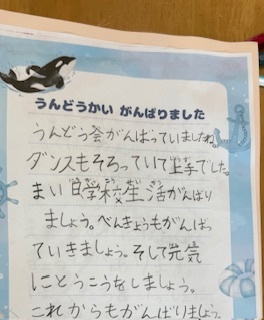 うんどうかい がんばりました
うんどう会がんばっていましたね。
ダンスもそろっていて上手でした。
まい日学校生活がんばり
ましょう。べんきょうもがんばっ
ていきましょう。そして元気
にとうこうをしましょう。
これからもがんばりましょう。